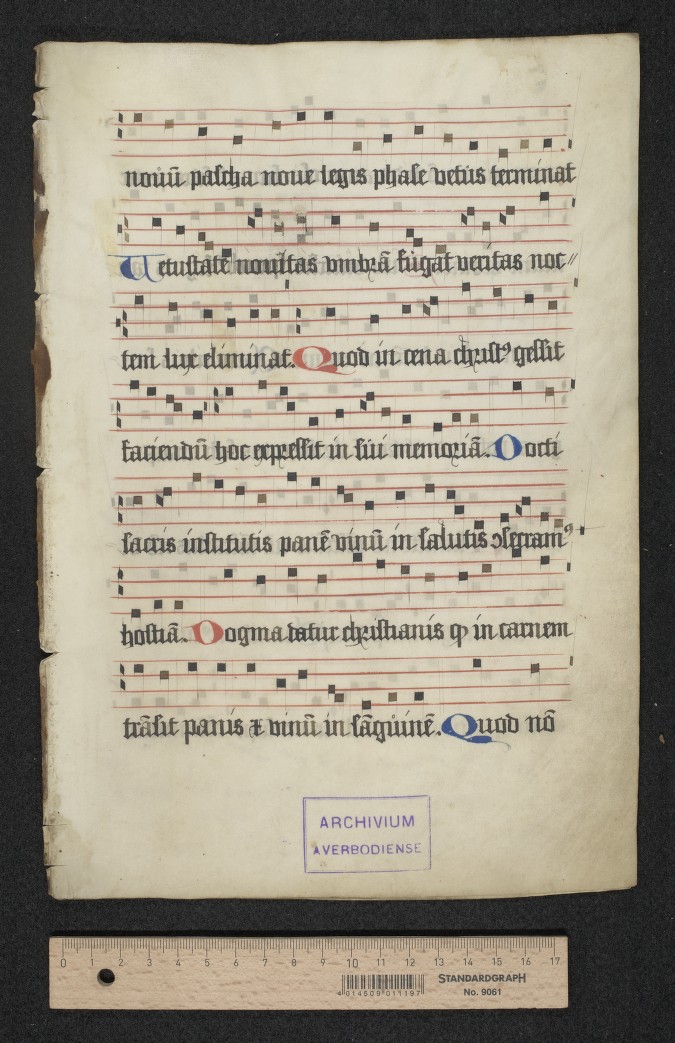 nouū pascha noue legis phase vetus terminat
Uetustatē nouitas vmbrā fugat veritas noc⸗
tem lux eliminat. Quod in cena christꝰ gessit
faciendū hoc expressit in sui memoriā. Docti
sacris institutis panē vinū in salutis ↄsecramꝰ
hostiā. Dogma datur christianis ꝙ in carnem
trāsit panis ⁊ vinū in sāguinē. Quod nō
ARCHIVIUM
AVERBODIENSE
0 1 2 3 4 5 6 7 8 9 10 11 12 13 14 15 16 17
STANDARDGRAPH
4 014509 011197
No. 9061